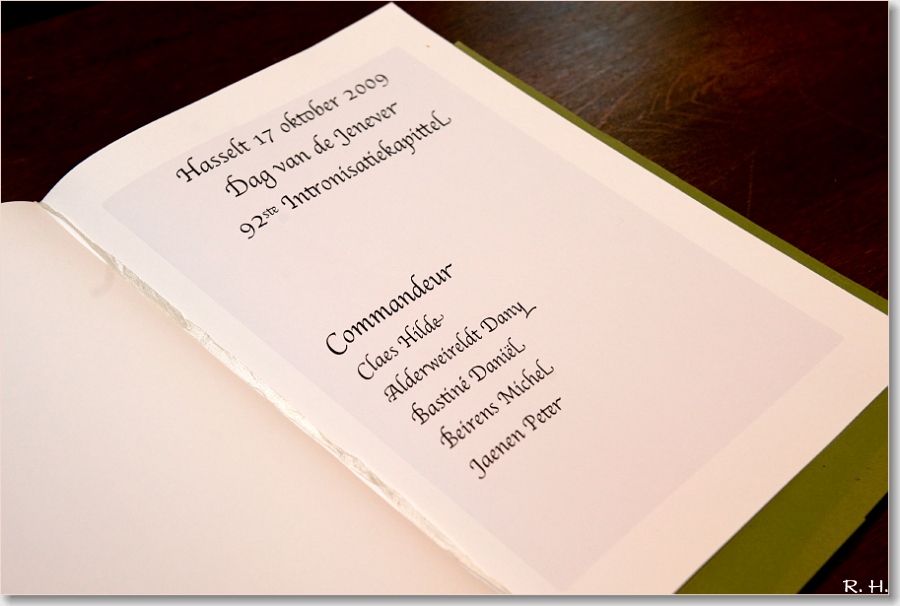 Hasselt 17 oktober 2009
Dag van de Jenever
92ste Intronisatiekapittel
Commandeur
Claes Hilde
Alderweireldt Dany
Bastiné Daniël
Beirens Michel
Jaenen Peter
R. H.